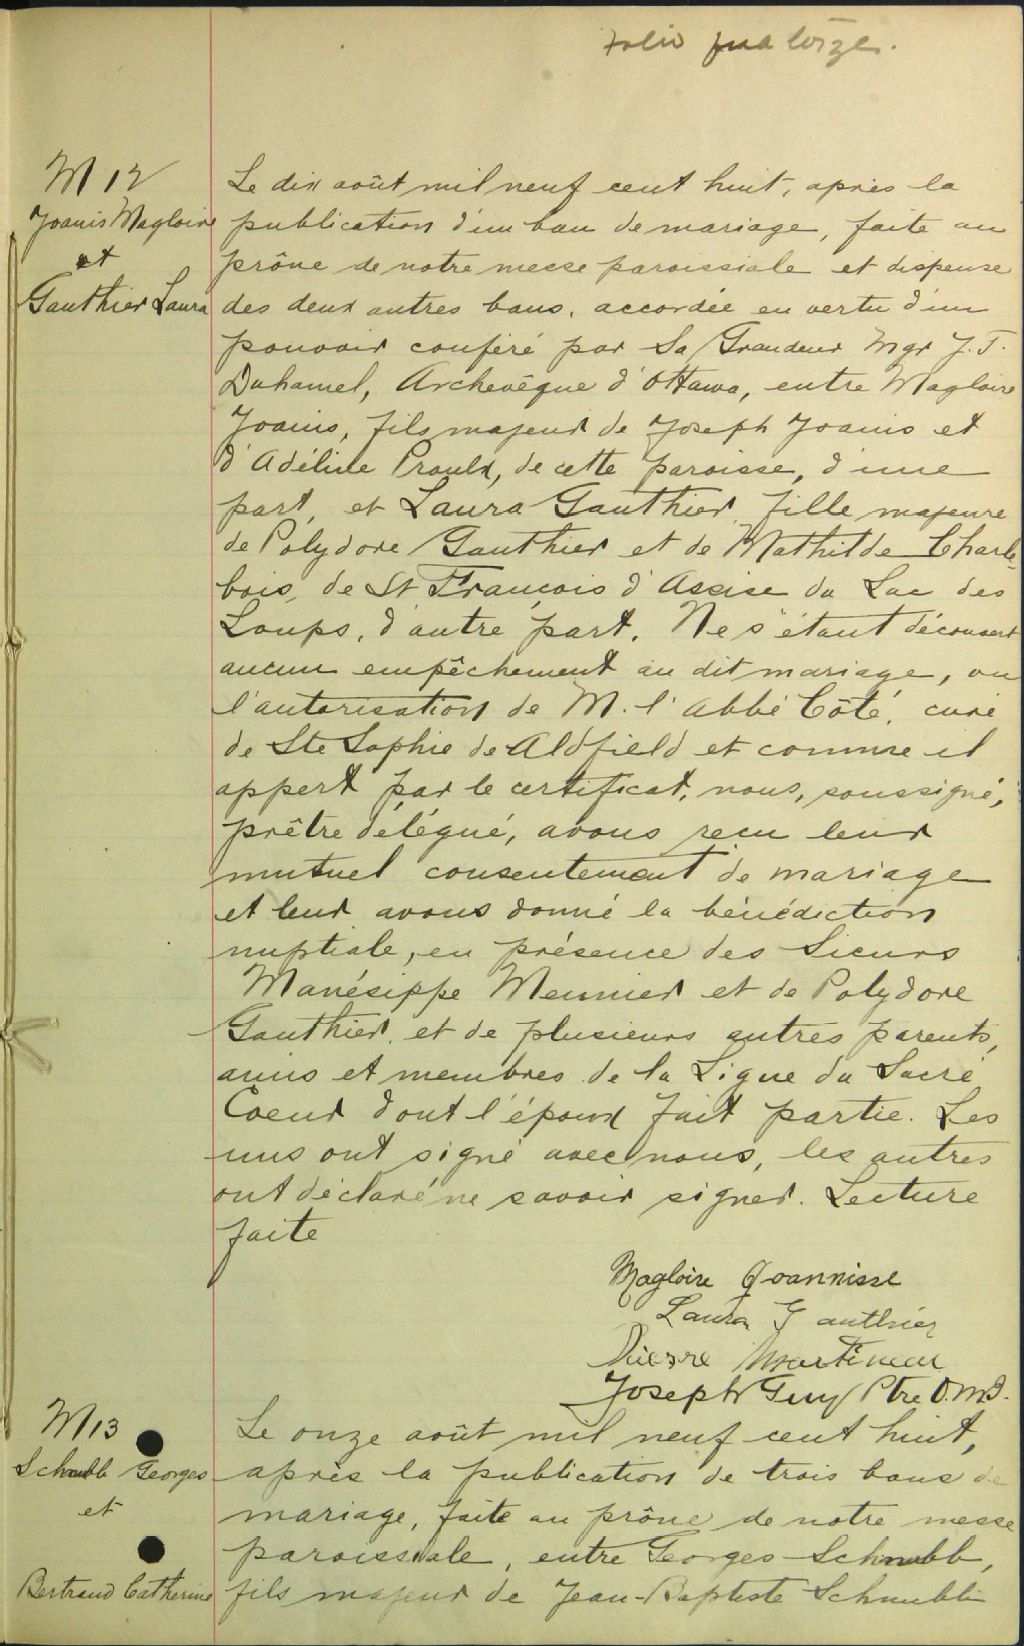 Folio quatorze.
M 12
Joanis Magloire
et
Gauthier Laura
Le dix août mil neuf cent huit, après la
publication d'un ban de mariage, faite au
prône de notre messe paroissiale et dispense
des deux autres bans, accordée en vertu d'un
pouvoir conféré par Sa Grandeur Mgr J. T.
Duhamel, Archevêque d'Ottawa, entre Magloire
Joanis, fils majeur de Joseph Joanis et
d'Adéline Proulx, de cette paroisse, d'une
part, et Laura Gauthier, fille majeure
de Polydore Gauthier et de Mathilde Charle-
bois, de St François d'Assise du Lac des
Loups, d'autre part. Ne s'étant découvert
aucun empêchement au dit mariage, vu
l'autorisation de M. l'Abbé Côté, curé
de Ste Sophie de Aldfield et comme il
appert par le certificat, nous, soussigné,
prêtre délégué, avons reçu leur
mutuel consentement de mariage
et leur avons donné la bénédiction
nuptiale, en présence des Sieurs
Manésippe Meunier et de Polydore
Gauthier, et de plusieurs autres parents,
amis et membres de la Ligue du Sacré
Coeur dont l'époux fait partie. Les
uns ont signé avec nous, les autres
ont déclaré ne savoir signer. Lecture
faite
Magloire Joannisse
Laura Gauthier
Pierre Martineau
Joseph Guy Ptre O.M.I.
M 13
Schnubb Georges
et
Bertrand Catherine
Le onze août mil neuf cent huit,
après la publication de trois bans de
mariage, faite au prône de notre messe
paroissiale, entre Georges Schnubb,
fils majeur de Jean-Baptiste Schnubb